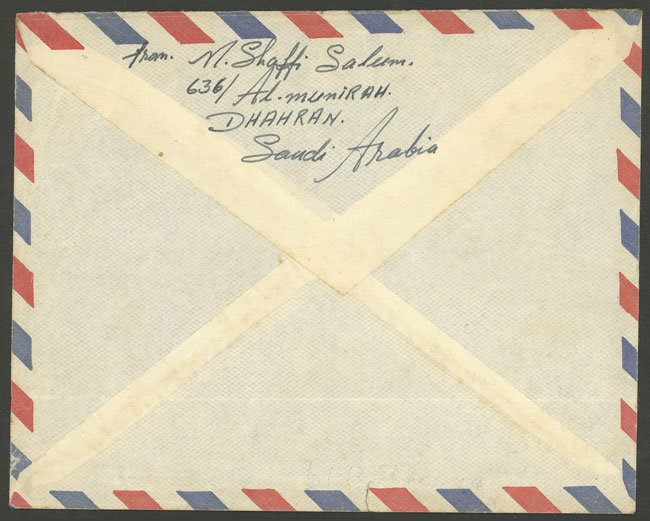 From. M. Shaffi Saleem.
636/ AL-MUNIRAH.
DHAHRAN.
Saudi Arabia